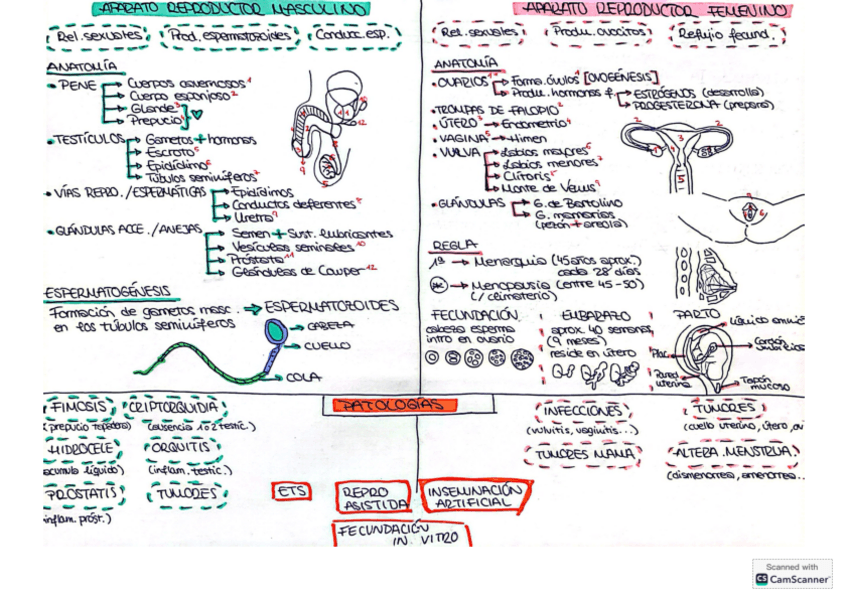 APARATO REPRODUCTOR MASCULINO
Rel. sexuales
Prod. espermatozoides
Conduc. esp.
ANATOMÍA
• PENE
Cuerpos cavernosos 1
Cuerpo esponjoso 2
Glande 3
Prepucio
• TESTÍCULOS
Gametos + hormonas
Escroto 5
Epidídimo 6
Túbulos seminíferos 7
• VÍAS REPRO./ESPERMÁTICAS
Epidídimos
Conductos deferentes 8
Uretra 9
• GLÁNDULAS ACCE./ANEJAS
Semen + Sust. lubricantes
Vesículas seminales 10
Próstata 11
Glándulas de Cowper 12
ESPERMATOGÉNESIS
Formación de gametos masc. → ESPERMATOZOIDES
en los túbulos seminíferos
CABEZA
CUELLO
COLA
APARATO REPRODUCTOR FEMENINO
Rel. sexuales
Produ. ovocitos
Refujio fecund.
ANATOMÍA
• OVARIOS 1
Forma. óvulos [OVOGÉNESIS]
Produ. hormonas f.
ESTRÓGENOS (desarrolla)
PROGESTERONA (prepara)
• TROMPAS DE FALOPIO 2
• ÚTERO 3 → Endometrio 4
• VAGINA 5 → Himen
• VULVA
Labios mayores 6
Labios menores 7
Clítoris 8
Monte de Venus 9
• GLÁNDULAS
G. de Bartolino
G. mamarias
(pezón + areola)
REGLA
1ª → Menarquia (45 años aprox.)
cada 28 días
→ Menopausia (entre 45-50)
(/ climaterio)
FECUNDACIÓN
cabeza esperma
intro en ovario
EMBARAZO
aprox. 40 semanas
(9 meses)
reside en útero
PARTO
Líquido amnió
Cordón
umbilical
Plac.
Pared
uterina
Tapón
mucoso
PATOLOGÍAS
FIMOSIS
(prepucio tapado)
CRIPTORQUIDIA
(ausencia 1 o 2 testíc.)
HIDROCELE
acumula líquido)
ORQUITIS
(inflam. testic.)
PROSTATIS
inflam. próst.)
TUMORES
INFECCIONES
(vulvitis, vaginitis...)
TUMORES
(cuello uterino, útero, ov
TUMORES MAMA
ALTERA. MENSTRUA.
(dismenorrea, amenorrea...
ETS
REPRO
ASISTIDA
INSEMINACIÓN
ARTIFICIAL
FECUNDACIÓN
IN VITRO
Scanned with
CS CamScanner